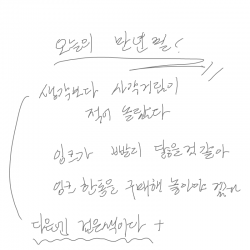 오늘의 만년필!
생각보다 사각거림이
적어 놀랐다
잉크가 빨리 닳을것 같아
잉크 한통을 구매해 놓아야 겠다
다음엔 검은색이다 +